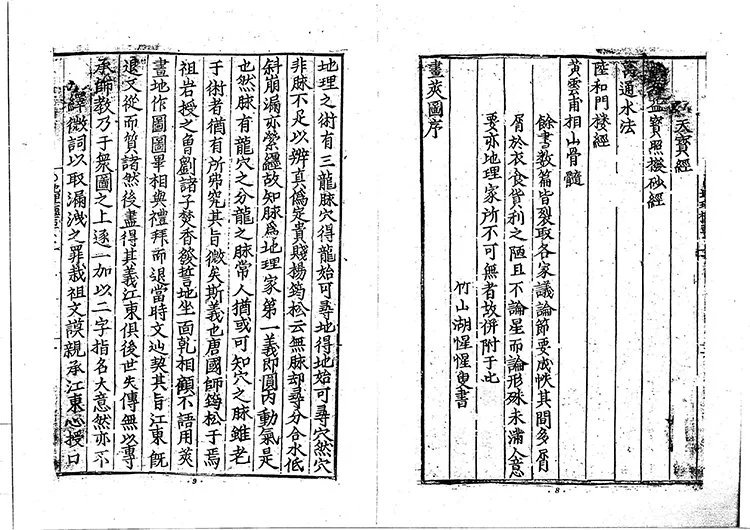 天寶經
寶照撥砂經
萬通水法
陸和門樓經
黃雲甫相山骨髓
餘書数篇皆裂取各家議論節要成帙其間多屑
屑於衣食貨利之陋且不論星而論形殊未滿人意
要亦地理家所不可無者故併附于此
竹山湖惺惺叟書
畫莢圖序
8
地理之術有三龍脉穴得龍始可尋地得地始可尋穴然穴
非脉不足以辨真偽定貴賤揚筠松云無脉却尋分合水低
斜崩漏亦縈纒故知脉為地理家第一義即圓內動氣是
也然脉有龍穴之分龍之脉常人猶或可知穴之脉雖老
于術者猶有所弗究其旨微矣斯義也唐國師筠松子焉
祖岩授之曾劉諸子焚香發誓地坐面乾相顧不語用莢
畫地作圖圖畢相與禮拜而退當時文辿契其旨江東旣
退又從而質諸然後盡得其義江東俱後世失傳無以專
承師教乃于衆圖之上逐一加以二字指名大意然亦不
譯微詞以取漏洩之罪哉祖文謨親承江東心授口
9